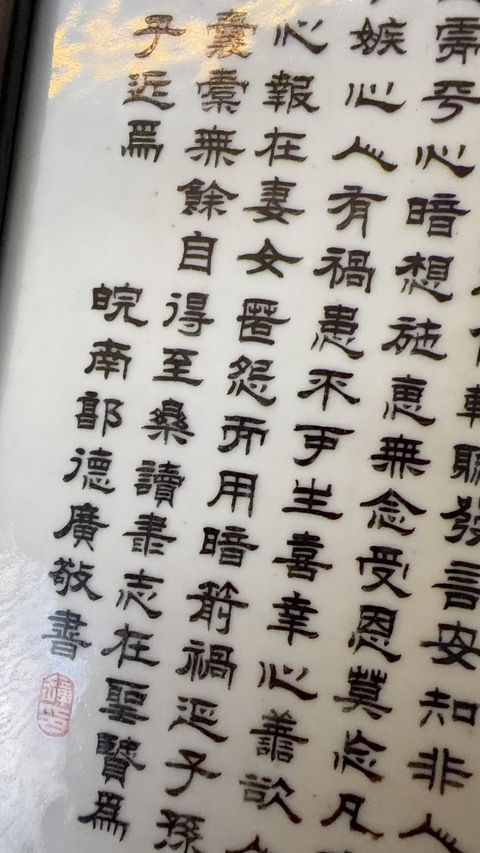 輕聽發言安知非人
需平心暗想施惠無念受恩莫念凡
嫉心人有禍患不可生喜幸心善欲
心報在妻女匿怨而用暗箭禍延子孫
囊橐無餘自得至樂讀書志在聖賢爲
乎近焉
皖南郭德廣敬書